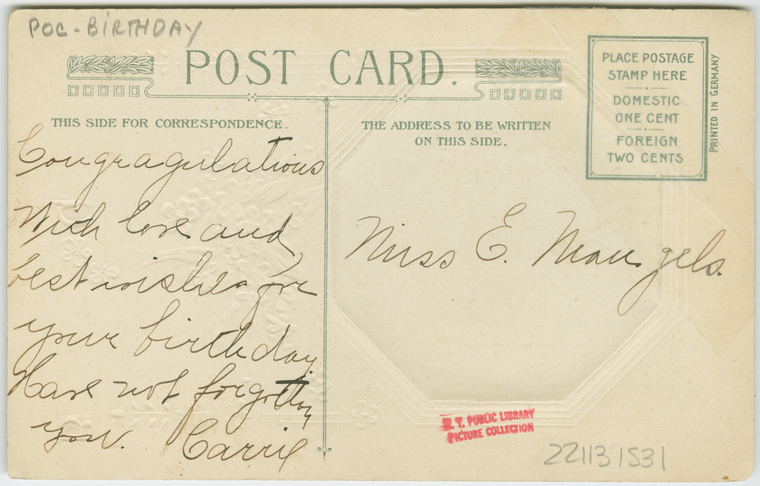 POC - BIRTHDAY
POST CARD.
PLACE POSTAGE
STAMP HERE
DOMESTIC
ONE CENT
FOREIGN
TWO CENTS
PRINTED IN GERMANY
THIS SIDE FOR CORRESPONDENCE.
Congragulations
With love and
best wishes for
your birthday
Have not forgotten
you. Carrie
THE ADDRESS TO BE WRITTEN
ON THIS SIDE.
Miss E. Mangels.
N. Y. PUBLIC LIBRARY
PICTURE COLLECTION
221131531